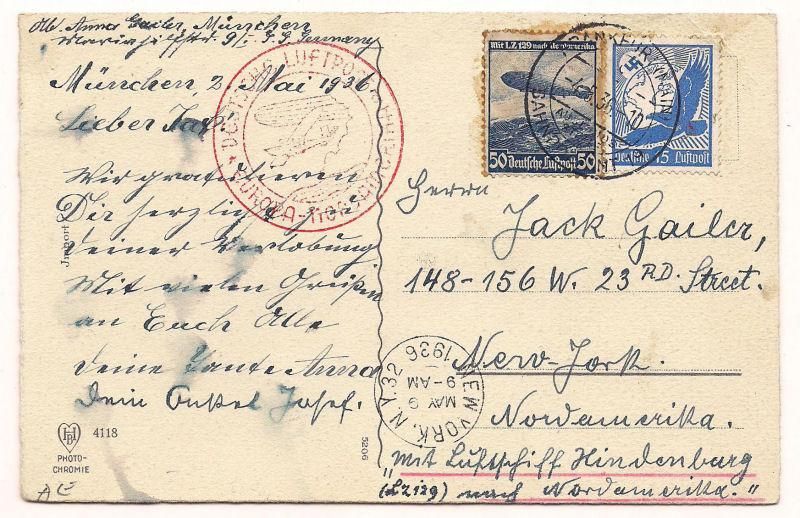 Abs. Anna Gailer, München
Mariahilfstr. 9/I. Germany
München 2. Mai 1936
Lieber Jak!
Wir gratulieren
Dir herzlich zu
deiner Verlobung
Mit vielen Grüßen
an Euch Alle
deine Tante Anna
Dein Onkel Josef.
4118
PHOTO-
CHROMIE
Import
5206
DEUTSCHE LUFTPOST
EUROPA-NORDAMERIKA
Mit LZ 129 nach Nordamerika
50 Deutsche Luftpost 50
Deutsche 15 Luftpost
BAHN
Herrn
Jack Gailer,
148-156 W. 23 RD. Street.
New-York.
Nordamerika.
"Mit Luftschiff Hindenburg
(LZ129) nach Nordamerika."
NEW YORK, N.Y. 32
MAY 9
9-AM
1936